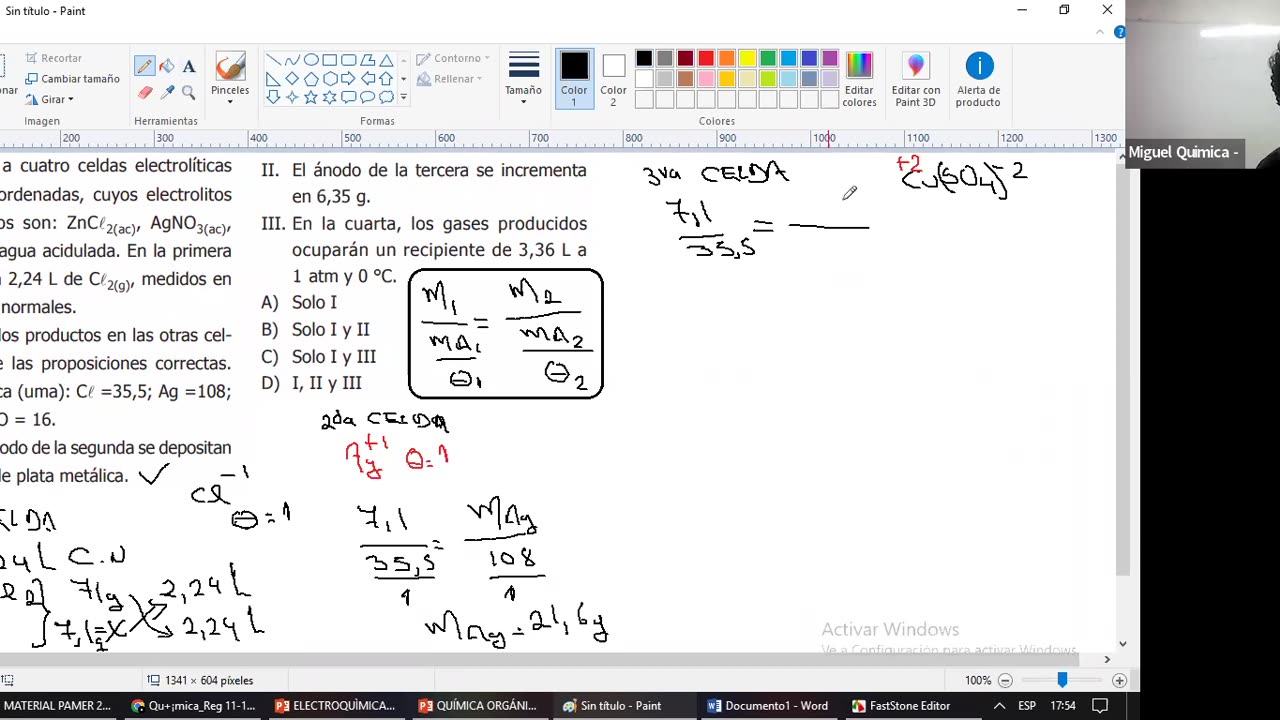 Sin título - Paint
Recortar
Cambiar tamaño
Girar
Imagen
Herramientas
Pinceles
Formas
Contorno
Rellenar
Tamaño
Color 1
Color 2
Colores
Editar colores
Editar con Paint 3D
Alerta de producto
200 300 400 500 600 700 800 900 1000 1100 1200 1300
Miguel Quimica -
a cuatro celdas electrolíticas
ordenadas, cuyos electrolitos
os son: ZnCℓ2(ac), AgNO3(ac),
agua acidulada. En la primera
2,24 L de Cℓ2(g), medidos en
normales.
los productos en las otras cel-
e las proposiciones correctas.
ca (uma): Cℓ =35,5; Ag =108;
O = 16.
odo de la segunda se depositan
de plata metálica.
II. El ánodo de la tercera se incrementa
en 6,35 g.
III. En la cuarta, los gases producidos
ocuparán un recipiente de 3,36 L a
1 atm y 0 °C.
A) Solo I
B) Solo I y II
C) Solo I y III
D) I, II y III
m1 = m2
mA1 mA2
θ1 θ2
3ra CELDA
7,1 =
35,5
+2
Cu(SO4)-2
2da CELDA
Ag+1 θ=1
7,1 = mAg
35,5 108
1 1
mAg = 21,6g
Cl-1
θ=1
ELDA
24 L C.N
71g 2,24 L
7,1g=X 2,24 L
Activar Windows
Ve a Configuración para activar Windows.
1341 × 604 píxeles
100%
MATERIAL PAMER 2...
Qu+¡mica_Reg 11-1...
ELECTROQUÍMICA...
QUÍMICA ORGÁNI...
Sin título - Paint
Documento1 - Word
FastStone Editor
ESP
17:54